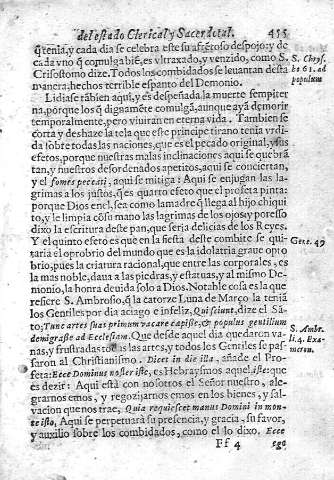 del estado Clerical y Sacerdotal. 455
q̃ tenia, y cada dia se celebra este su afrētoso despojo: y de
cada vno q̃ comulga biē, es vltraxado, y venzido, como S.
Crisostomo dize. Todos los combidados se leuantan desta
manera, hechos terrible espanto del Demonio.
S. Chrys.
61. ad
populum
Lidiase tābien aqui, y es despeñada la muerte sempiter
na, porque los q̃ dignamēte comulgā, aunque ayā de morir
temporalmente, pero viuiran en eterna vida. Tambien se
corta y deshaze la tela que este principe tirano tenia vrdi
da sobre todas las naciones, que es el pecado original, y sus
efetos, porque nuestras malas inclinaciones aqui se quebrā
tan, y nuestros desordenados apetitos, aqui se conciertan,
y el fomes peccati, aqui se mitiga: Aqui se enjugan las la-
grimas a los justos, q̃ es quarto efeto que el profeta pinta:
porque Dios en el, sea como la madre q̃ llega al hijo chiqui
to, y le limpia cō su mano las lagrimas de los ojos: y por esso
dixo la escritura deste pan, que seria delicias de los Reyes.
Y el quinto efeto es que en la fiesta deste combite se qui-
taria el oprobrio del mundo que es la idolatria graue opro
brio, pues la criatura racional, que entre las corporales, es
la mas noble, daua a las piedras, y estatuas, y al mismo De-
monio, la honra deuida solo a Dios. Notable cosa es la que
refiere S. Ambrosio, q̃ la catorze Luna de Março la teniā
los Gentiles por dia aciago e infeliz. Qui sciunt, dize el Sā-
to, Tunc artes suas primum vacare capisse, & populus gentilium
demigrasse ad Ecclesiam. Que desde aquel dia quedaron va-
nas, y frustradas todas las artes, y todos los Gentiles se pas-
saron al Christianismo. Dicet in die illa, añade el Pro-
feta: Ecce Dominus noster iste, es Hebraysmos aquel, iste: que
es dezir: Aqui està con nosotros el Señor nuestro, ale-
grarnos emos, y regozijarnos emos en los bienes, y sal-
uacion que nos trae, Quia requiescet manus Domini in mon-
te isto, Aqui se perpetuarà su presencia, y gracia, su fauor,
y auxilio sobre los combidados, como el lo dixo. Ecce
Gene. 49
S. Ambr.
li. 4. Exa-
meron.
Ff 4
ego